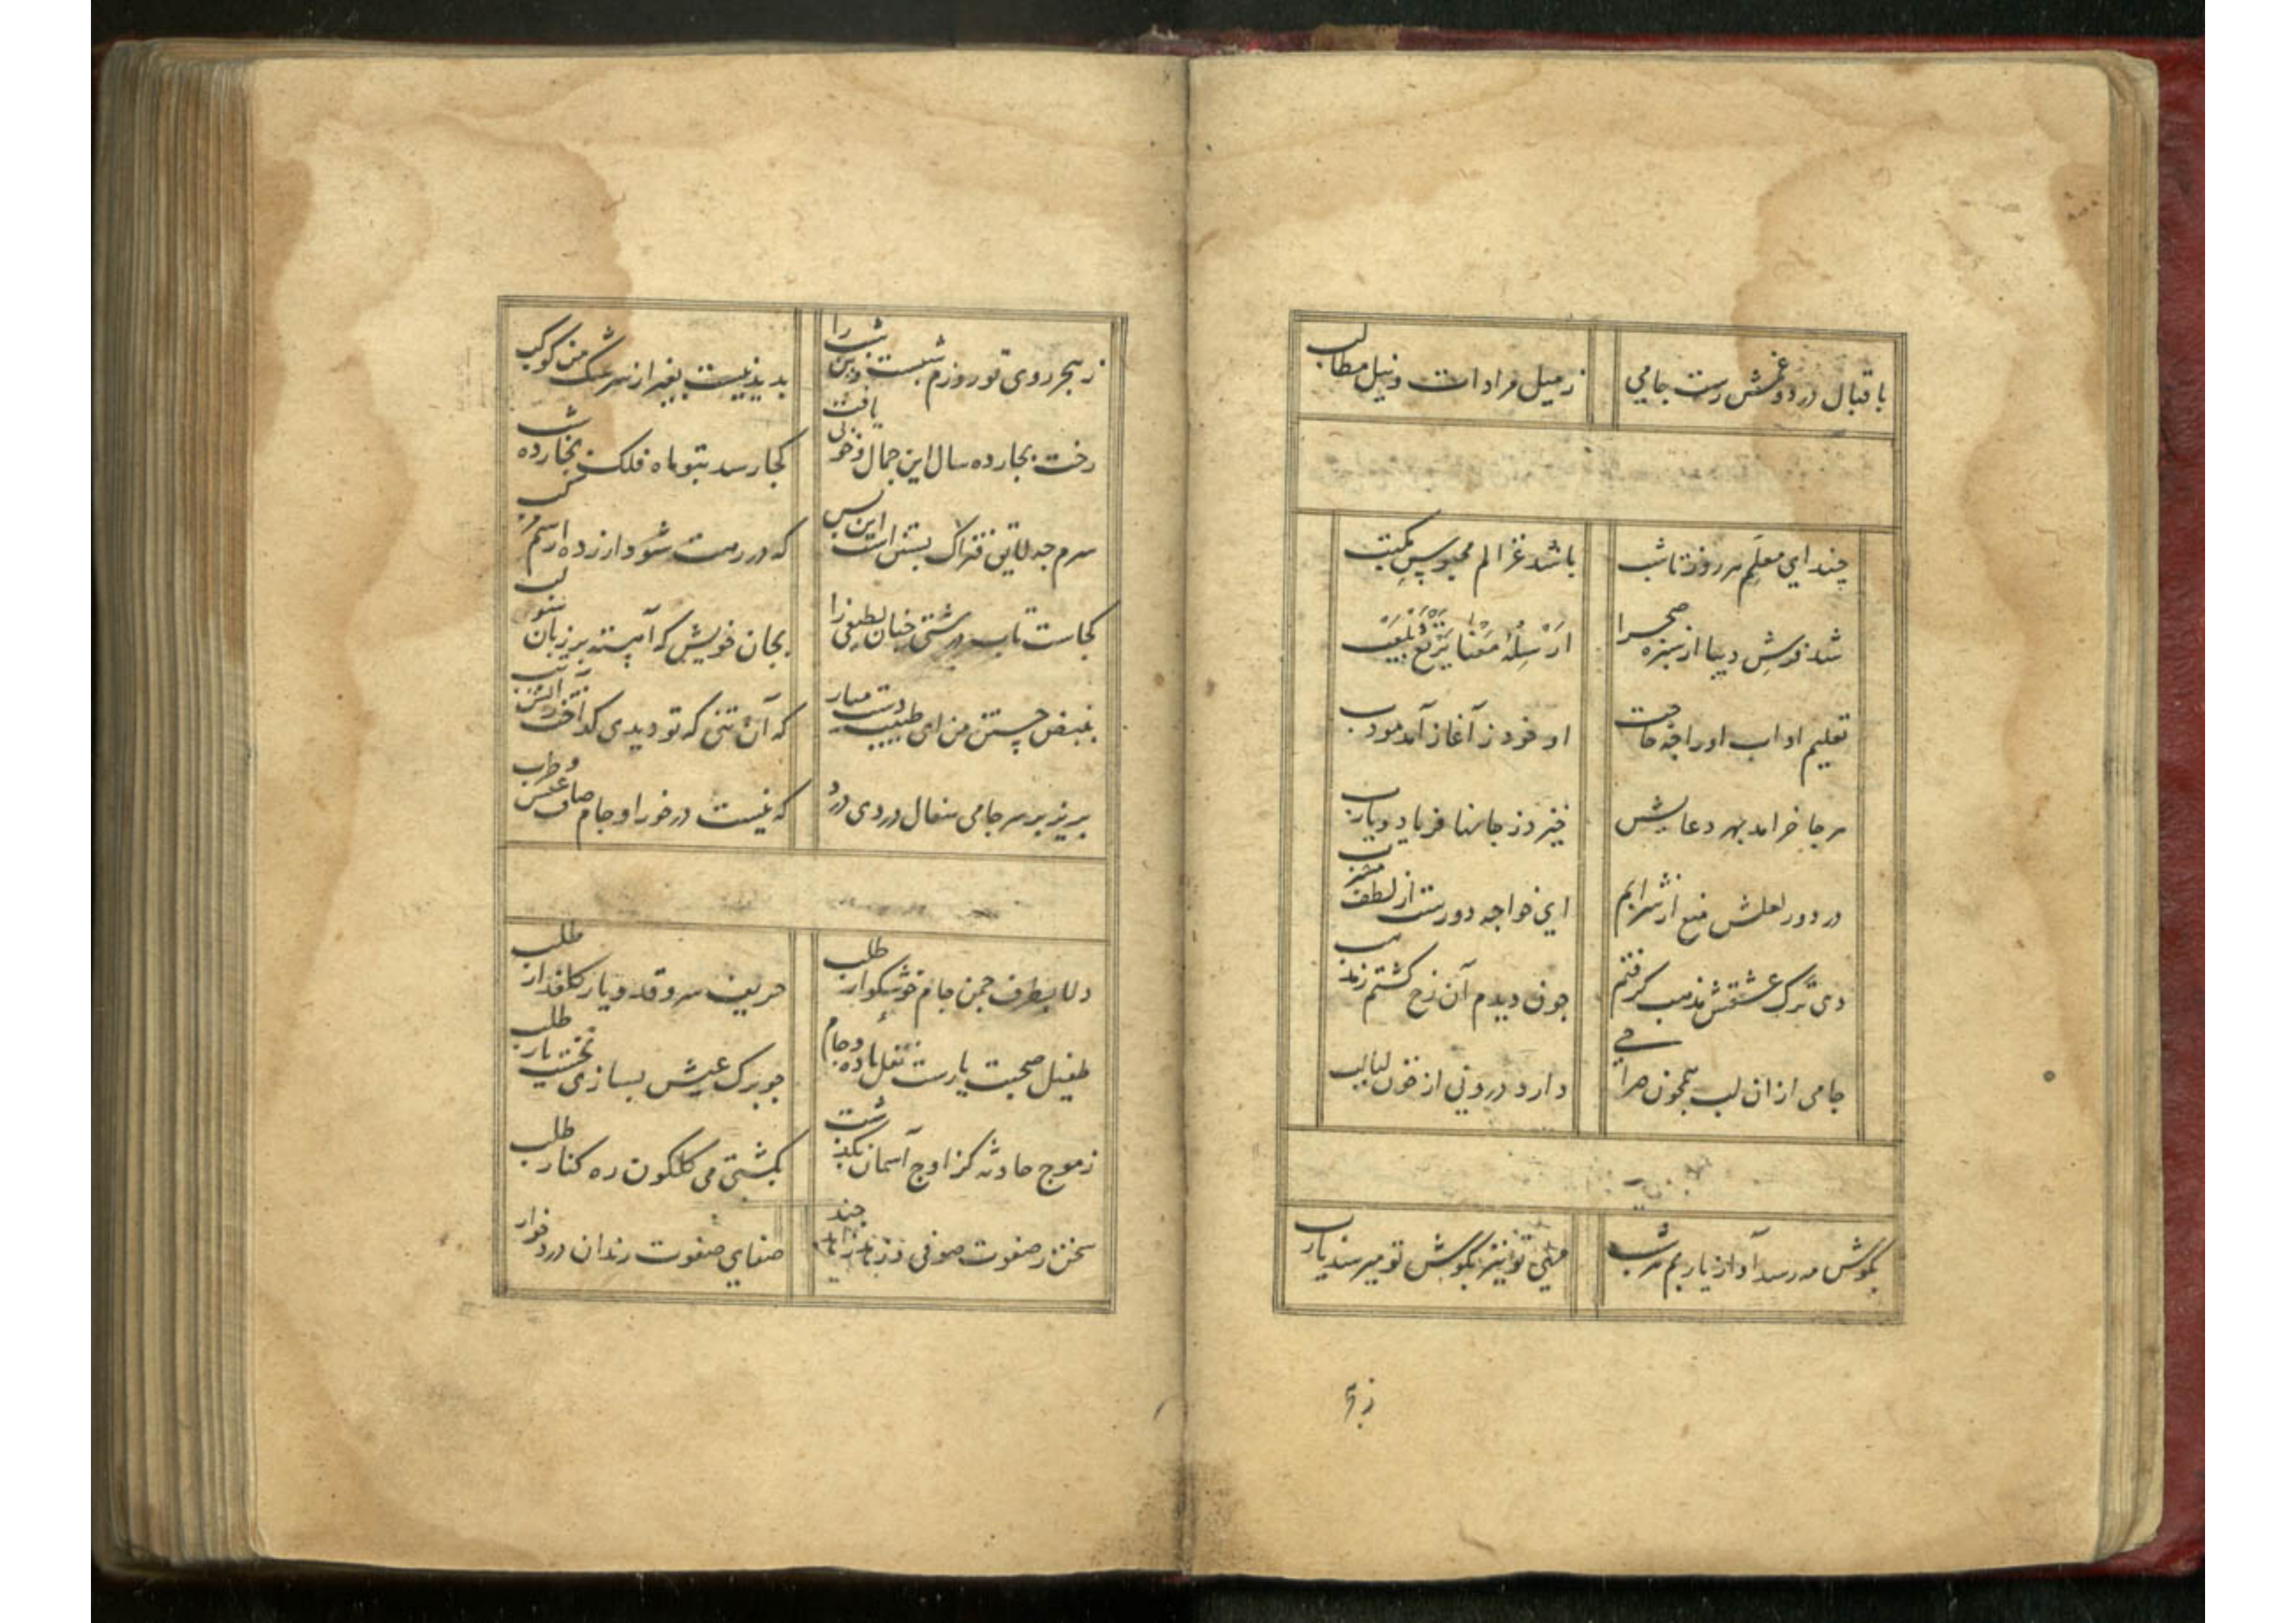 باقبال درد و غمش رست جامی
ز میل مرادات و نیل مطالب
چند ای معلم هر روز تا شب
باشد غزالم محبوس مکتب
شد خوش دیبا از سبزه صحرا
ارسله معنا یرتع و یلعب
تعلیم اداب او را چه حاجت
او خود ز آغاز آمد مودب
هر جا خرامد بهر دعایش
خیزد ز جانها فریاد و یارب
در دور لعلش منع از شرابم
ای خواجه دورست از لطف مشرب
دی ترک عشقش مذهب گرفتم
چون دیدم آن رخ گشتم ز مذهب
جامی از ان لب همچون صراحی
دارد درونی از خون لبالب
بگوش مه رسد آواز یاربم هر شب
مهی تو نیز بگوش تو میرسد یارب
ز هجر
ز هجر روی تو روزم شبست و این شب را
بدید نیست بغیر از سرشک من کوکب
رخت بچارده سال این جمال و خوبی یافت
کجا رسد بتو ماه فلک بچارده شب
سرم چه لایق فتراک بستن است این بس
که در رهت شود ازرده از سم مرکب
کجاست تاب درشتی چنان لطیفی را
بجان خویش که آهسته بر زبان لب
بنبض جستن من ای طبیب دست میار
که آن تنی که تو دیدی گداخت ز آتش تب
بریز بر سر جامی سفال دردی درد
که نیست درخور او جام صاف عیش و طرب
دلا بطرف چمن جام خوشگوار طلب
حریف سروقد و یار گلعذار طلب
طفیل صحبت یارست نقل و باده و جام
چو برگ عیش بسازی نخست یار طلب
ز موج حادثه کز اوج آسمان بگذشت
بکشتی می گلگون ره کنار طلب
سخن ز صفوت صوفی و زرق زاهد چند
صفای صفوت رندان دردخوار